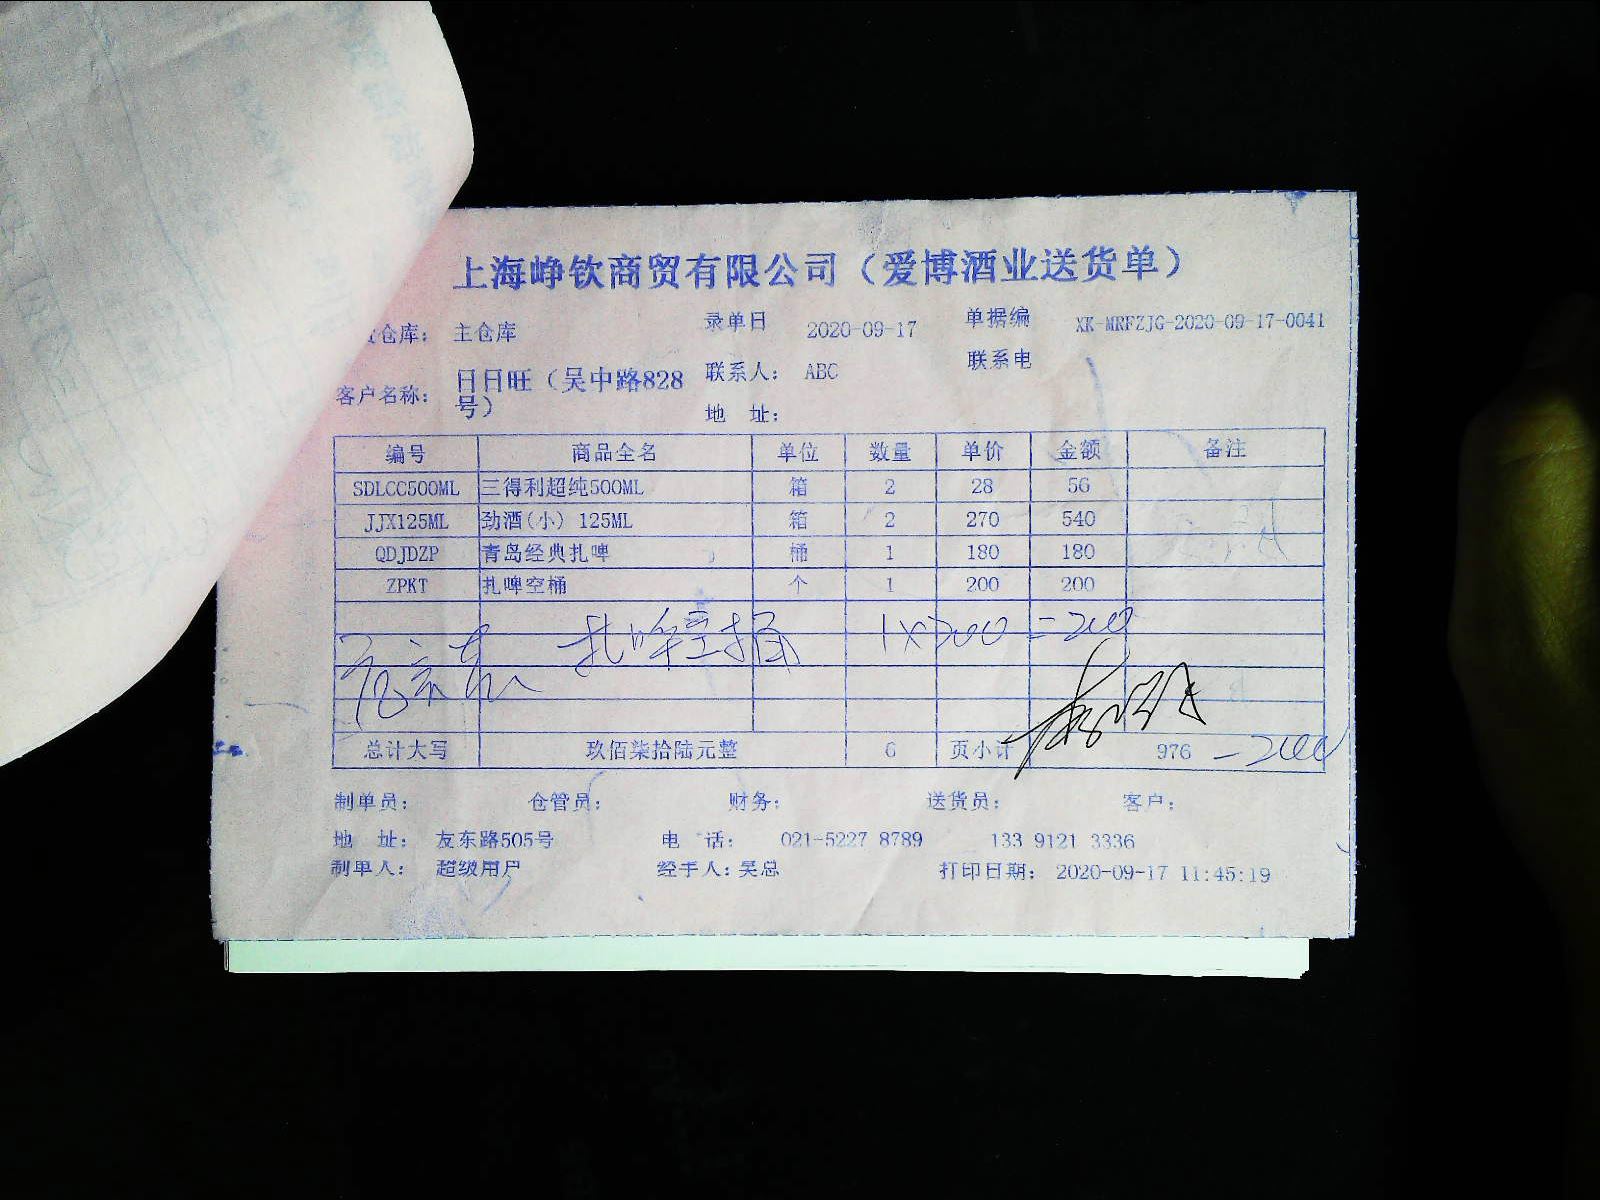 上海峥钦商贸有限公司（爱博酒业送货单）
仓库： 主仓库 录单日 2020-09-17 单据编 XK-MRFZJG-2020-09-17-0041
客户名称： 日日旺（吴中路828号） 联系人： ABC 联系电
地 址：
编号 商品全名 单位 数量 单价 金额 备注
SDLCC500ML 三得利超纯500ML 箱 2 28 56
JJX125ML 劲酒(小) 125ML 箱 2 270 540
QDJDZP 青岛经典扎啤 桶 1 180 180
ZPKT 扎啤空桶 个 1 200 200
扎啤空桶 1×200=200
总计大写 玖佰柒拾陆元整 6 页小计 976 -200
制单员： 仓管员： 财务： 送货员： 客户：
地 址： 友东路505号 电 话： 021-5227 8789 133 9121 3336
制单人： 超级用户 经手人：吴总 打印日期： 2020-09-17 11:45:19